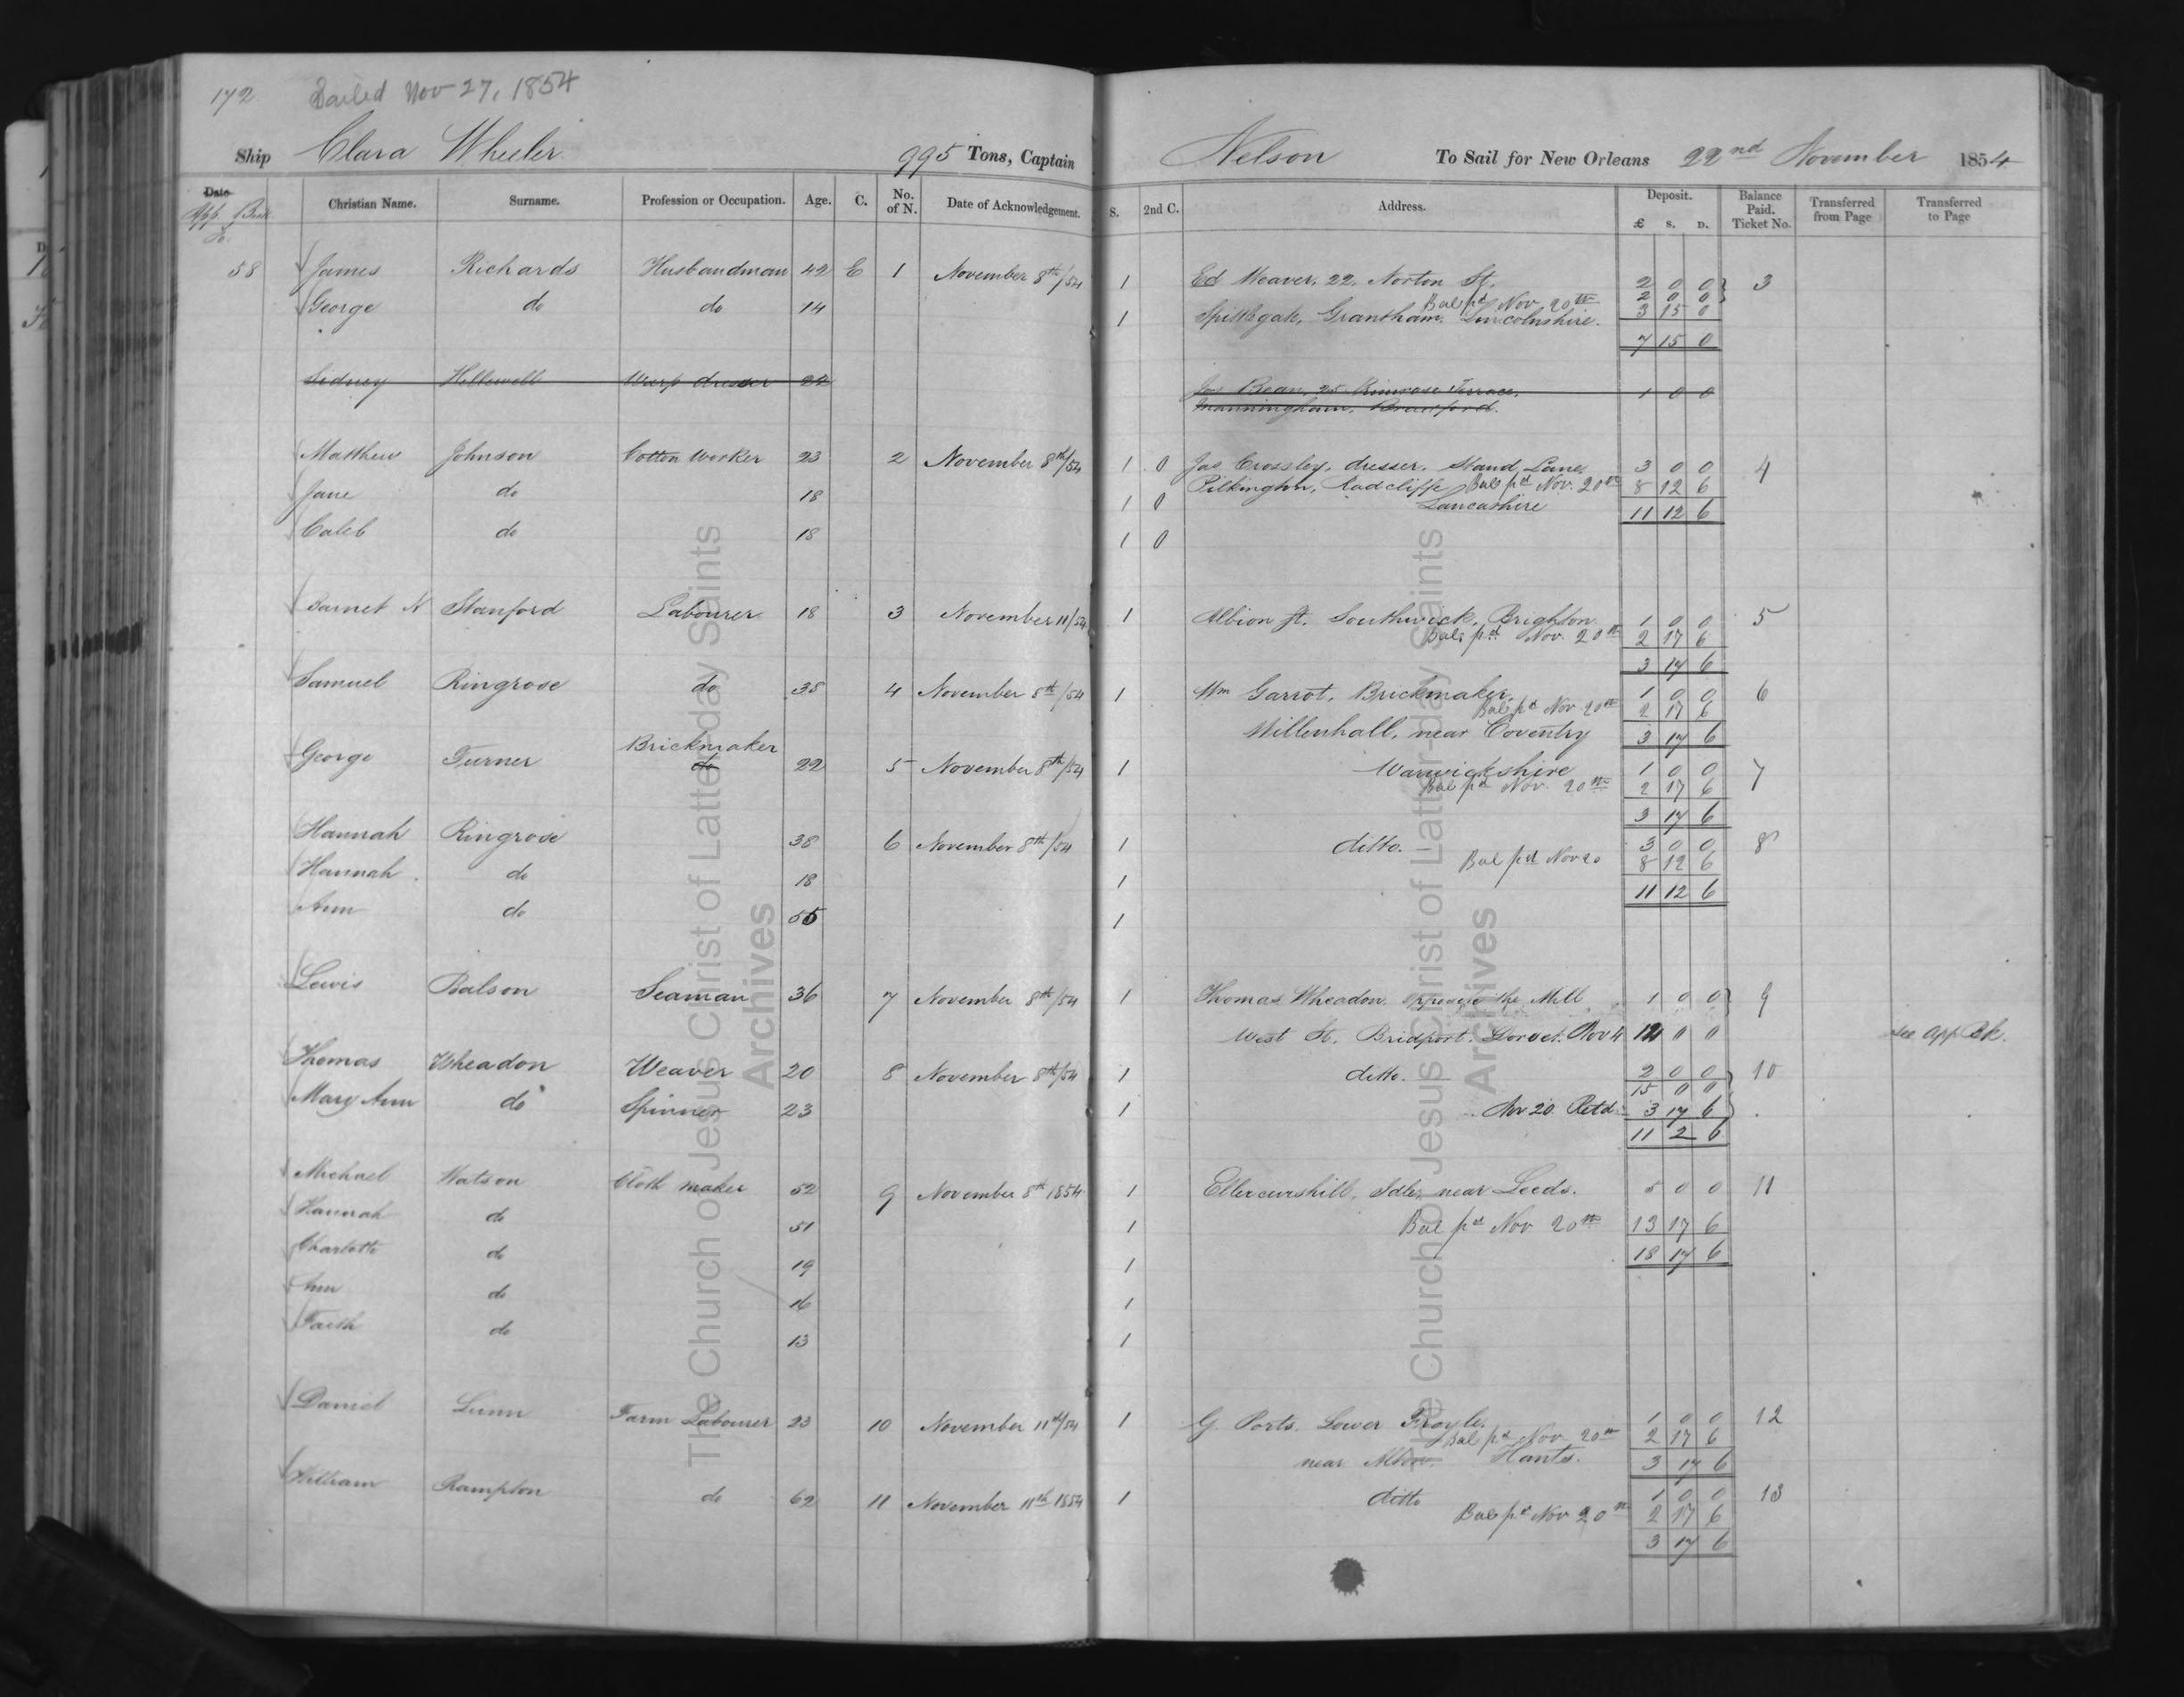 172 Sailed Nov 27, 1854
Ship Clara Wheeler 995 Tons, Captain Nelson To Sail for New Orleans 22nd November 1854
Date App. Book Christian Name. Surname. Profession or Occupation. Age. C. No. of N. Date of Acknowledgement. S. 2nd C. Address. Deposit. £ S. D. Balance Paid. Ticket No. Transferred from Page Transferred to Page
58 James Richards Husbandman 42 E 1 November 8th/54 1 Ed Weaver, 22, Norton St. 2 0 0 3
Bal pd Nov 20th 2 0 0
George do do 14 1 Spittlegate, Grantham, Lincolnshire. 3 15 0
7 15 0
Sidney Hellewell Warp dresser 24 Jas Bean, 25 Primrose Terrace, 1 0 0
Manningham, Bradford.
Matthew Johnson Cotton Worker 23 2 November 8th/54 1 0 Jas Crossley, dresser, Stand Lane, 3 0 0 4
Jane do 18 1 0 Pilkington, Radcliffe Bal pd Nov. 20th 8 12 6
Lancashire 11 12 6
Caleb do 18 1 0
Barnet N Stanford Labourer 18 3 November 11/54 1 Albion St. Southwick, Brighton 1 0 0 5
Bal pd Nov. 20th 2 17 6
3 17 6
Samuel Ringrose do 38 4 November 8th/54 1 Wm Garrot, Brickmaker, 1 0 0 6
Bal pd Nov 20th 2 17 6
Willenhall, near Coventry 3 17 6
Brickmaker
George Turner do 22 5 November 8th/54 1 Warwickshire 1 0 0 7
Bal pd Nov. 20th 2 17 6
3 17 6
Hannah Ringrose 38 6 November 8th/54 1 ditto. 3 0 0 8
Hannah do 18 1 Bal pd Nov 20 8 12 6
11 12 6
Ann do 55 1
Lewis Balson Seaman 36 7 November 8th/54 1 Thomas Wheadon opposite the Mill 1 0 0 9
West St. Bridport. Dorset. Nov 4 12 0 0 see App Bk.
Thomas Wheadon Weaver 20 8 November 8th/54 1 ditto. 2 0 0 10
15 0 0
Mary Ann do Spinner 23 1 Nov 20 Retd 3 17 6
11 2 6
Michael Watson Cloth maker 52 9 November 8th 1854 1 Ellercurshill, Idle, near Leeds. 5 0 0 11
Hannah do 51 1 Bal pd Nov 20th 13 17 6
18 17 6
Charlotte do 19 1
Ann do 16 1
Faith do 13 1
Daniel Lunn Farm Labourer 23 10 November 11th/54 1 G. Ports. Lower Froyle. 1 0 0 12
Bal pd Nov. 20th 2 17 6
near Alton. Hants. 3 17 6
William Rampton do 62 11 November 11th 1854 1 ditto 1 0 0 13
Bal pd Nov 20th 2 17 6
3 17 6
The Church of Jesus Christ of Latter-day Saints
Archives
The Church of Jesus Christ of Latter-day Saints
Archives